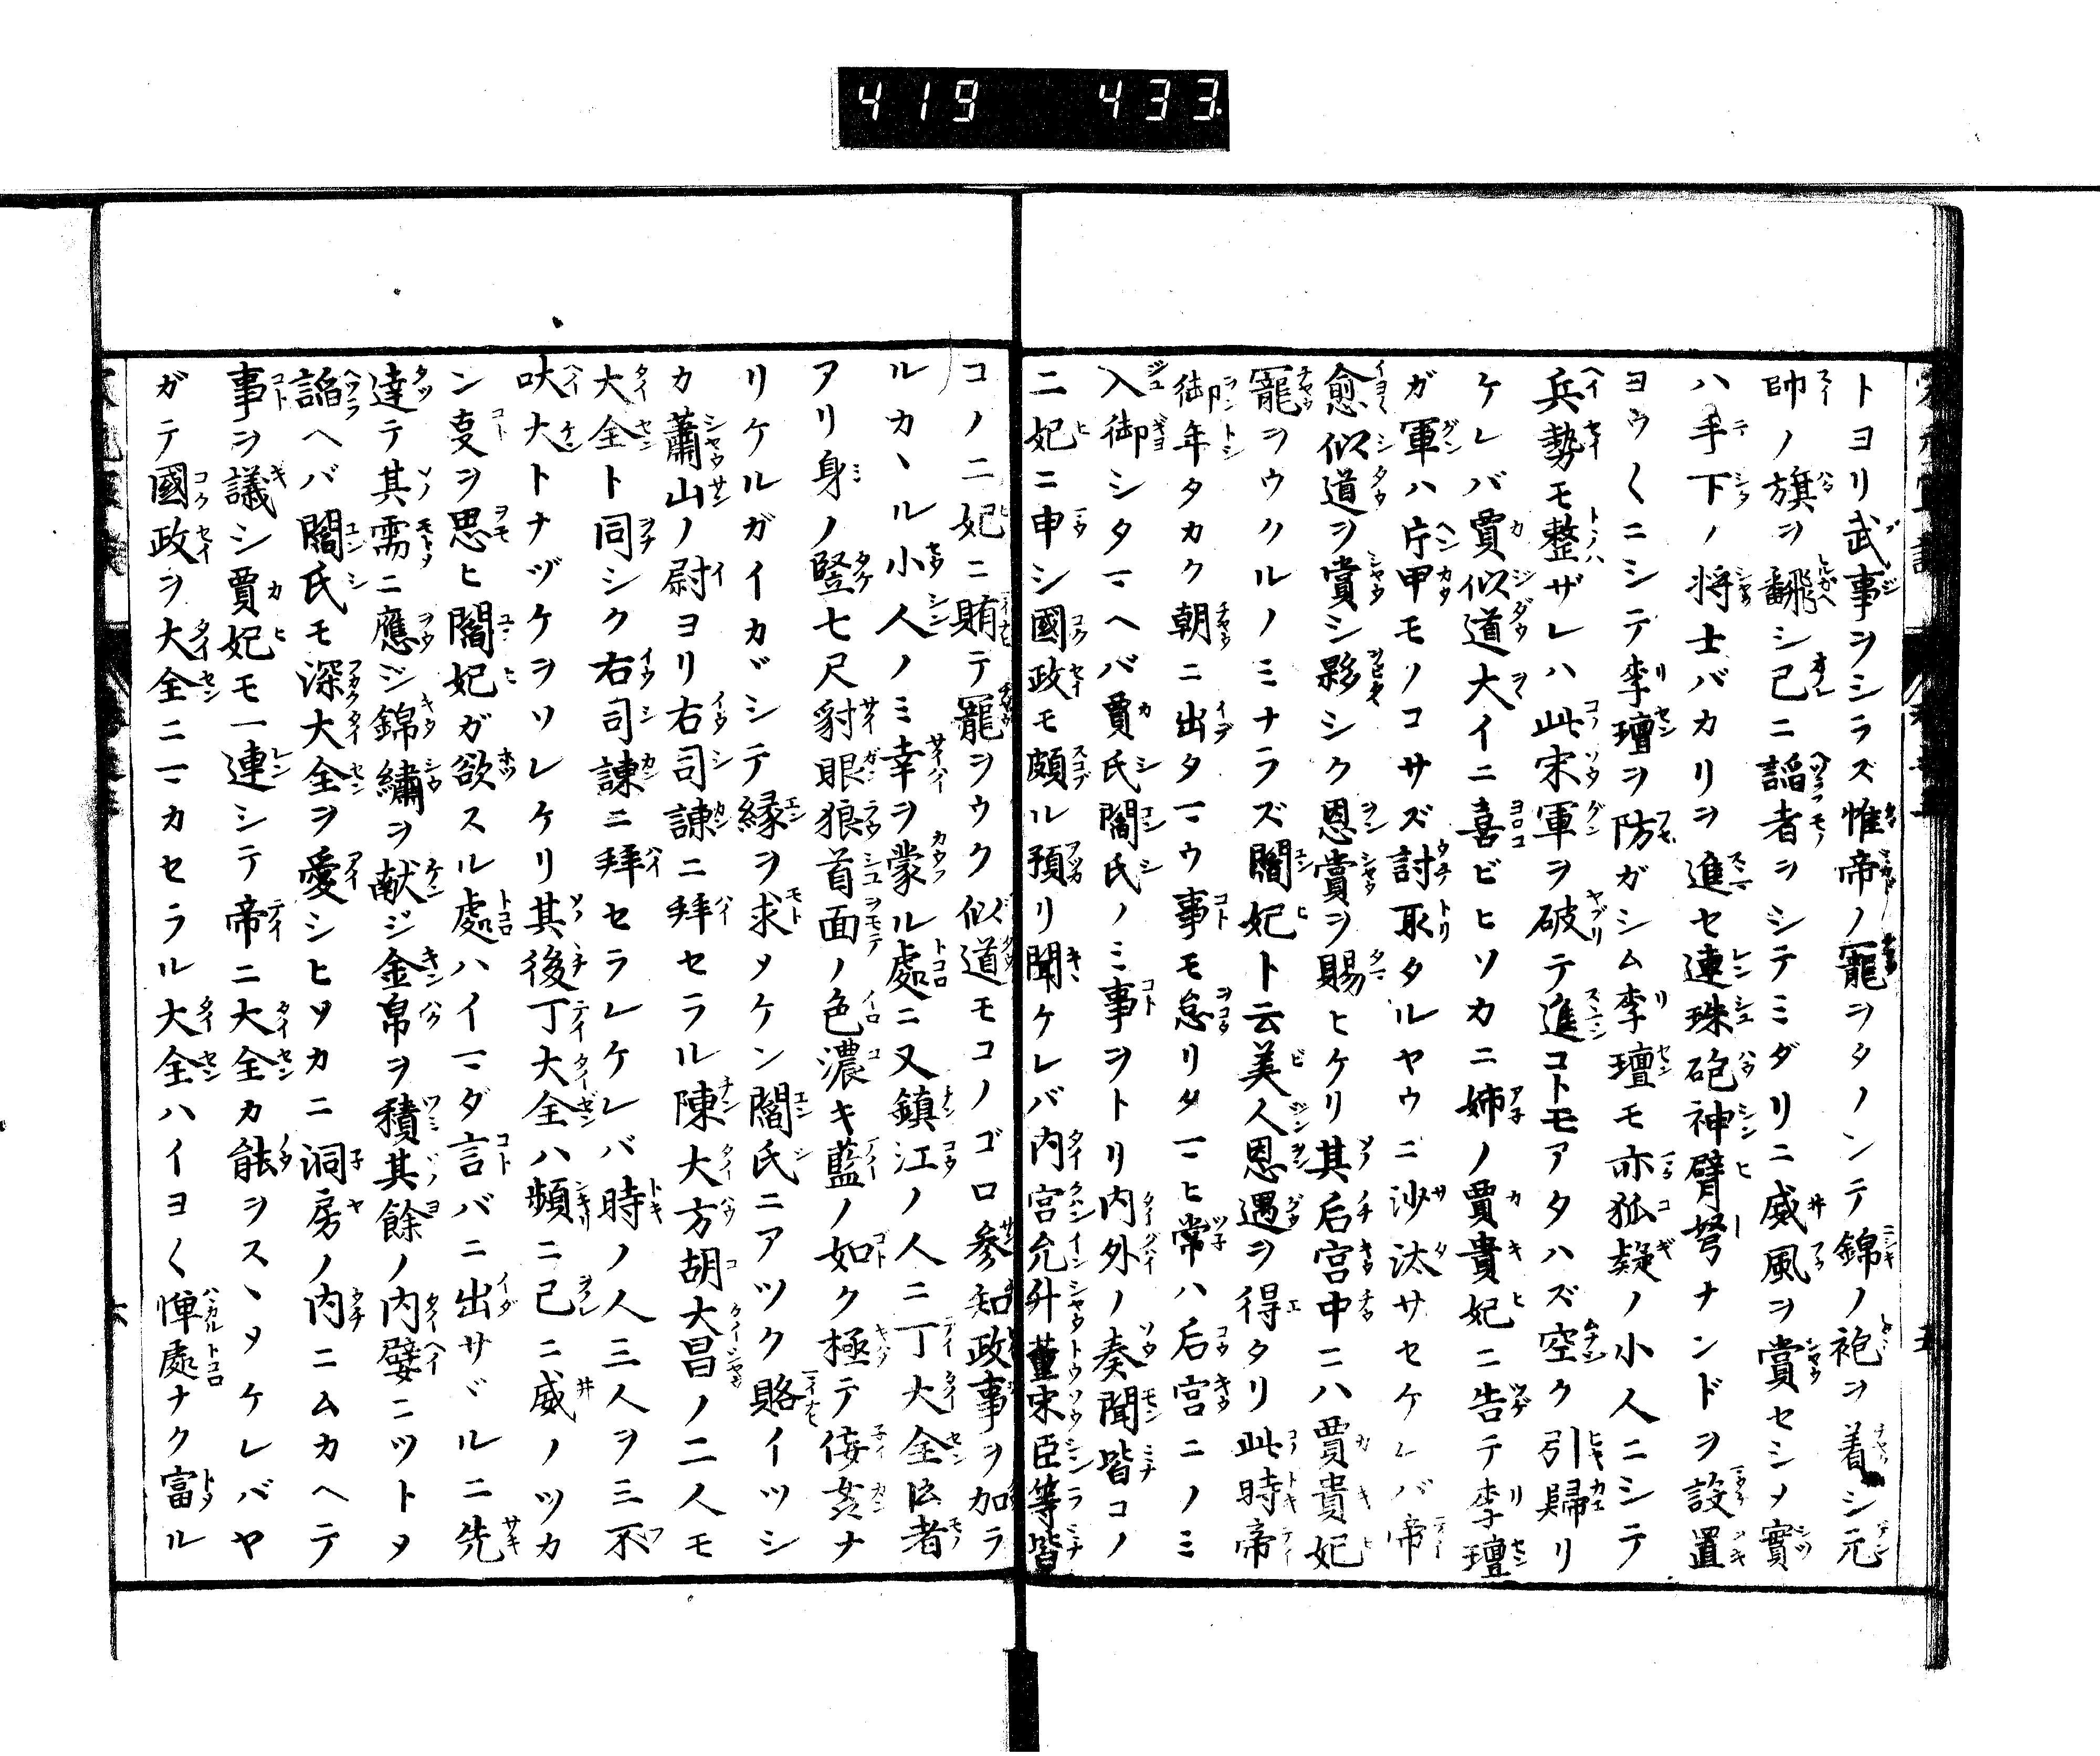 419 433
トヨリ武事ヲシラズ惟帝ノ寵ヲタノンテ錦ノ袍ヲ着シ元
帥ノ旗ヲ飜シ己ニ謟者ヲシテミダリニ威風ヲ賞セシメ實
ハ手下ノ将士バカリヲ進セ連珠砲神臂弩ナンドヲ設置
ヨウ〱ニシテ李璮ヲ防ガシム李璮モ亦狐疑ノ小人ニシテ
兵勢モ整ザレハ此宋軍ヲ破テ進コトモアタハズ空ク引歸リ
ケレバ賈似道大イニ喜ビヒソカニ姉ノ賈貴妃ニ告テ李璮
ガ軍ハ片甲モノコサズ討取タルヤウニ沙汰サセケレバ帝
愈似道ヲ賞シ夥シク恩賞ヲ賜ヒケリ其后宮中ニハ賈貴妃
寵ヲウクルノミナラズ閻妃ト云美人恩遇ヲ得タリ此時帝
御年タカク朝ニ出タマウ事モ怠リタマヒ常ハ后宮ニノミ
入御シタマヘバ賈氏閻氏ノミ事ヲトリ内外ノ奏聞皆コノ
二妃ニ申シ國政モ頗ル預リ聞ケレバ内宮允升董宋臣等皆
コノ二妃ニ賄テ寵ヲウク似道モコノゴロ參知政事ヲ加ラ
ルカヽル小人ノミ幸ヲ蒙ル處ニ又鎮江ノ人ニ丁大全云者
アリ身ノ竪七尺豺眼狼首面ノ色濃キ藍ノ如ク極テ侫姦ナ
リケルガイカヾシテ縁ヲ求メケン閻氏ニアツク賂イツシ
カ蕭山ノ尉ヨリ右司諌ニ拜セラル陳大方胡大昌ノ二人モ
大全ト同シク右司諌ニ拜セラレケレバ時ノ人三人ヲ三不
吠犬トナヅケヲソレケリ其後丁大全ハ頻ニ己ニ威ノツカ
ン叓ヲ思ヒ閻妃ガ欲スル處ハイマダ言バニ出サヾルニ先
達テ其需ニ應ジ錦繡ヲ献ジ金帛ヲ積其餘ノ内嬖ニツトメ
謟ヘバ閻氏モ深大全ヲ愛シヒソカニ洞房ノ内ニムカヘテ
事ヲ議シ賈妃モ一連シテ帝ニ大全カ能ヲスヽメケレバヤ
ガテ國政ヲ大全ニマカセラル大全ハイヨ〱憚處ナク富ル